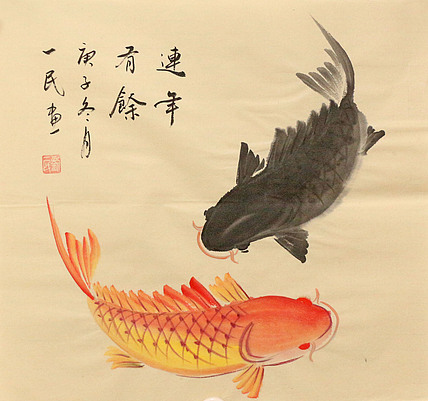 連年
有餘
庚子冬月
一民畫